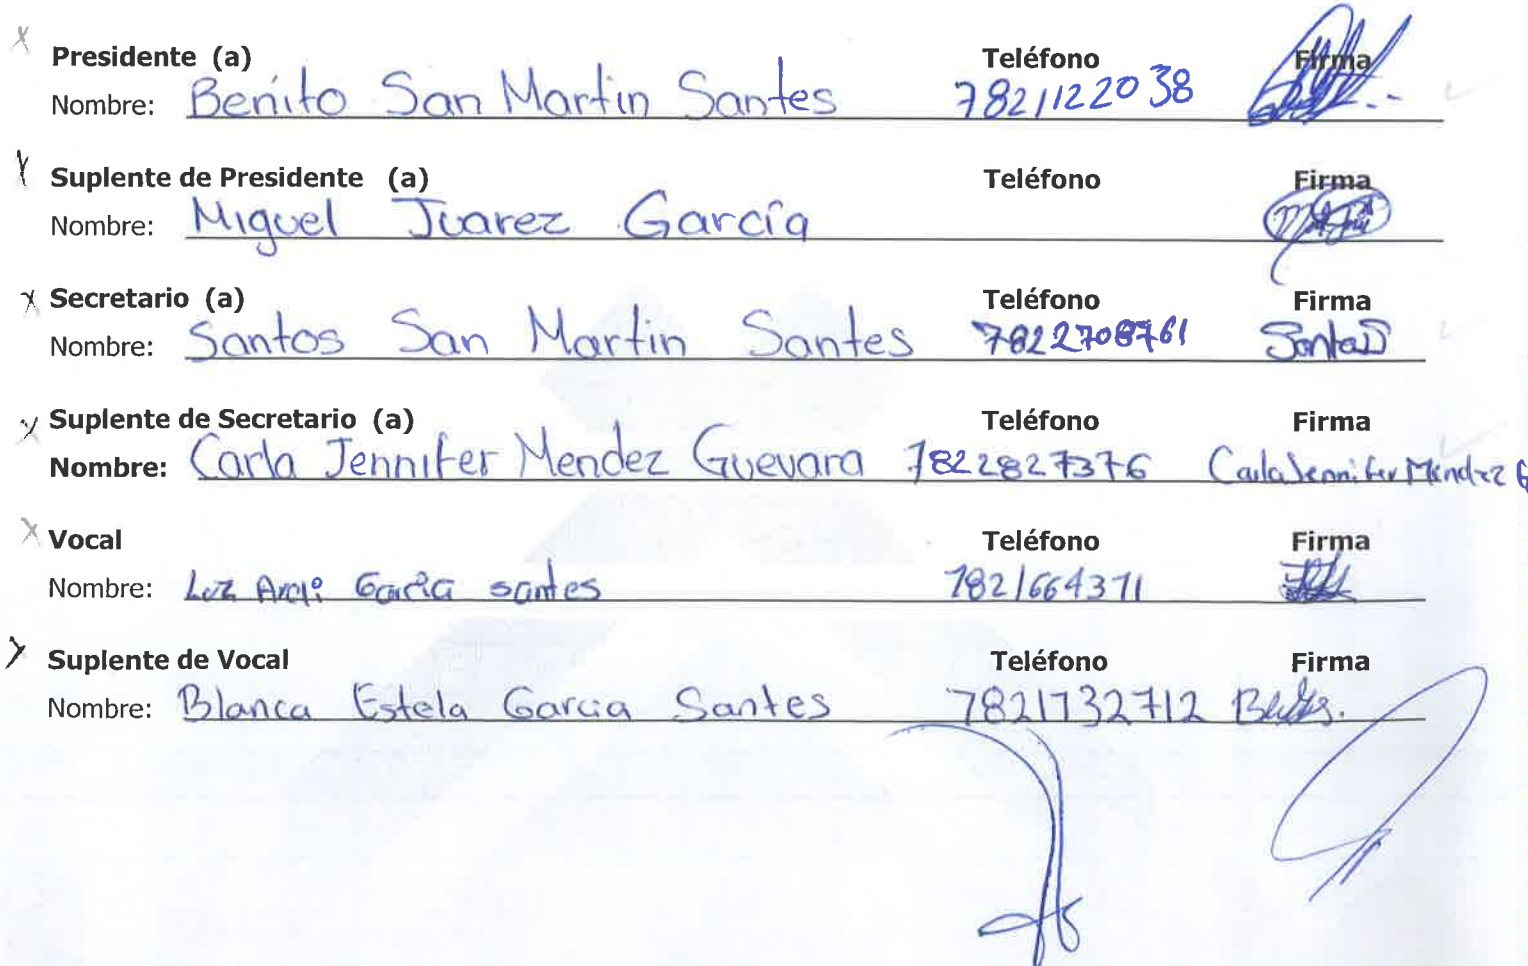 Presidente (a) Teléfono Firma
Nombre: Benito San Martin Santes 7821122038
Suplente de Presidente (a) Teléfono Firma
Nombre: Miguel Juarez García
Secretario (a) Teléfono Firma
Nombre: Santos San Martin Santes 7822708761 Santos
Suplente de Secretario (a) Teléfono Firma
Nombre: Carla Jennifer Mendez Guevara 7822827376 Carla Jennifer Mendez G
Vocal Teléfono Firma
Nombre: Luz Garcia santes 7821664371
Suplente de Vocal Teléfono Firma
Nombre: Blanca Estela Garcia Santes 7821732712